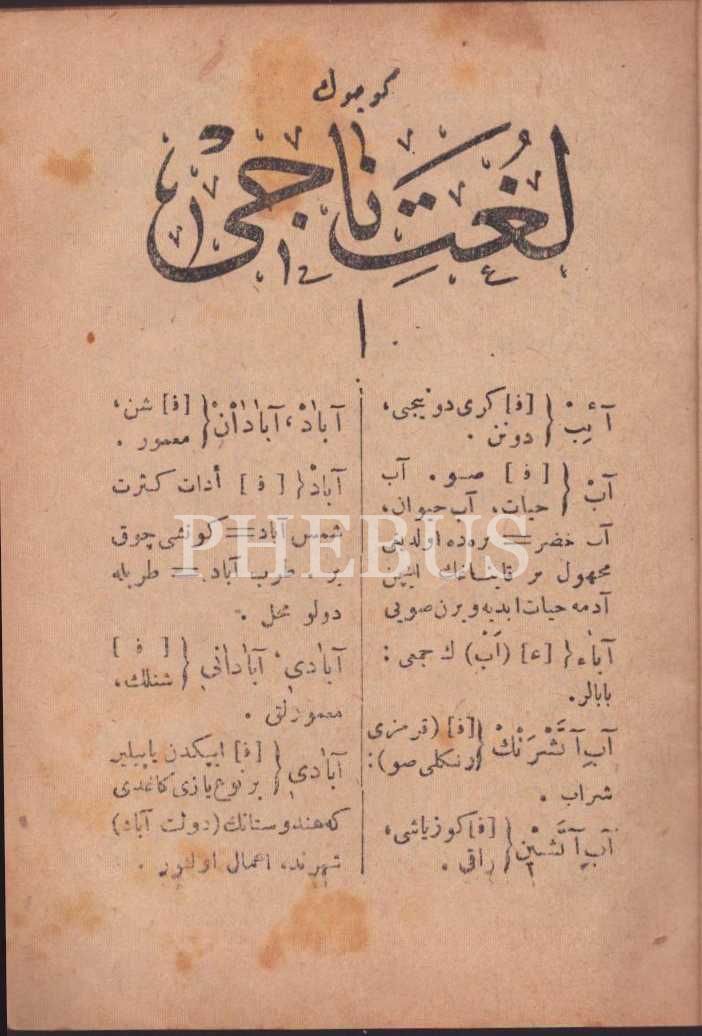 كوچوك
لُغتِ ناجیْ
ا
آئِبْ { [ف] كری دونیجی،
دونن .
آبْ { [ف] صو . آب
حیات، آب حیوان،
آب خضر = نره‌ده اولدیغی
مجهول بر قایناغك ایچن
آدمه حیات ابدیه ویرن صویی
آباء { [ع] (اَبْ) ك جمعی :
بابالر.
آبِ آتَشْرَنْكْ { [ف] (قرمزی
رنكلی صو) :
شراب .
آبِ آتَشْین { [ف] كوز یاشی،
راقی .
آبادْ، آبادانْ { [ف] شن،
معمور .
آبادْ { [ف] أدات كثرت
شمس آباد = كونشی چوق
یر . طرب آباد = طربله
دولو محل .
آبادی، آبادانی { [ف]
شنلك،
معمورلق .
آبادی { [ف] ایپكدن یاپیلیر
بر نوع یازی كاغدی
كه هندوستانك (دولت آباد)
شهرنده اعمال اولنور .
PHEBUS